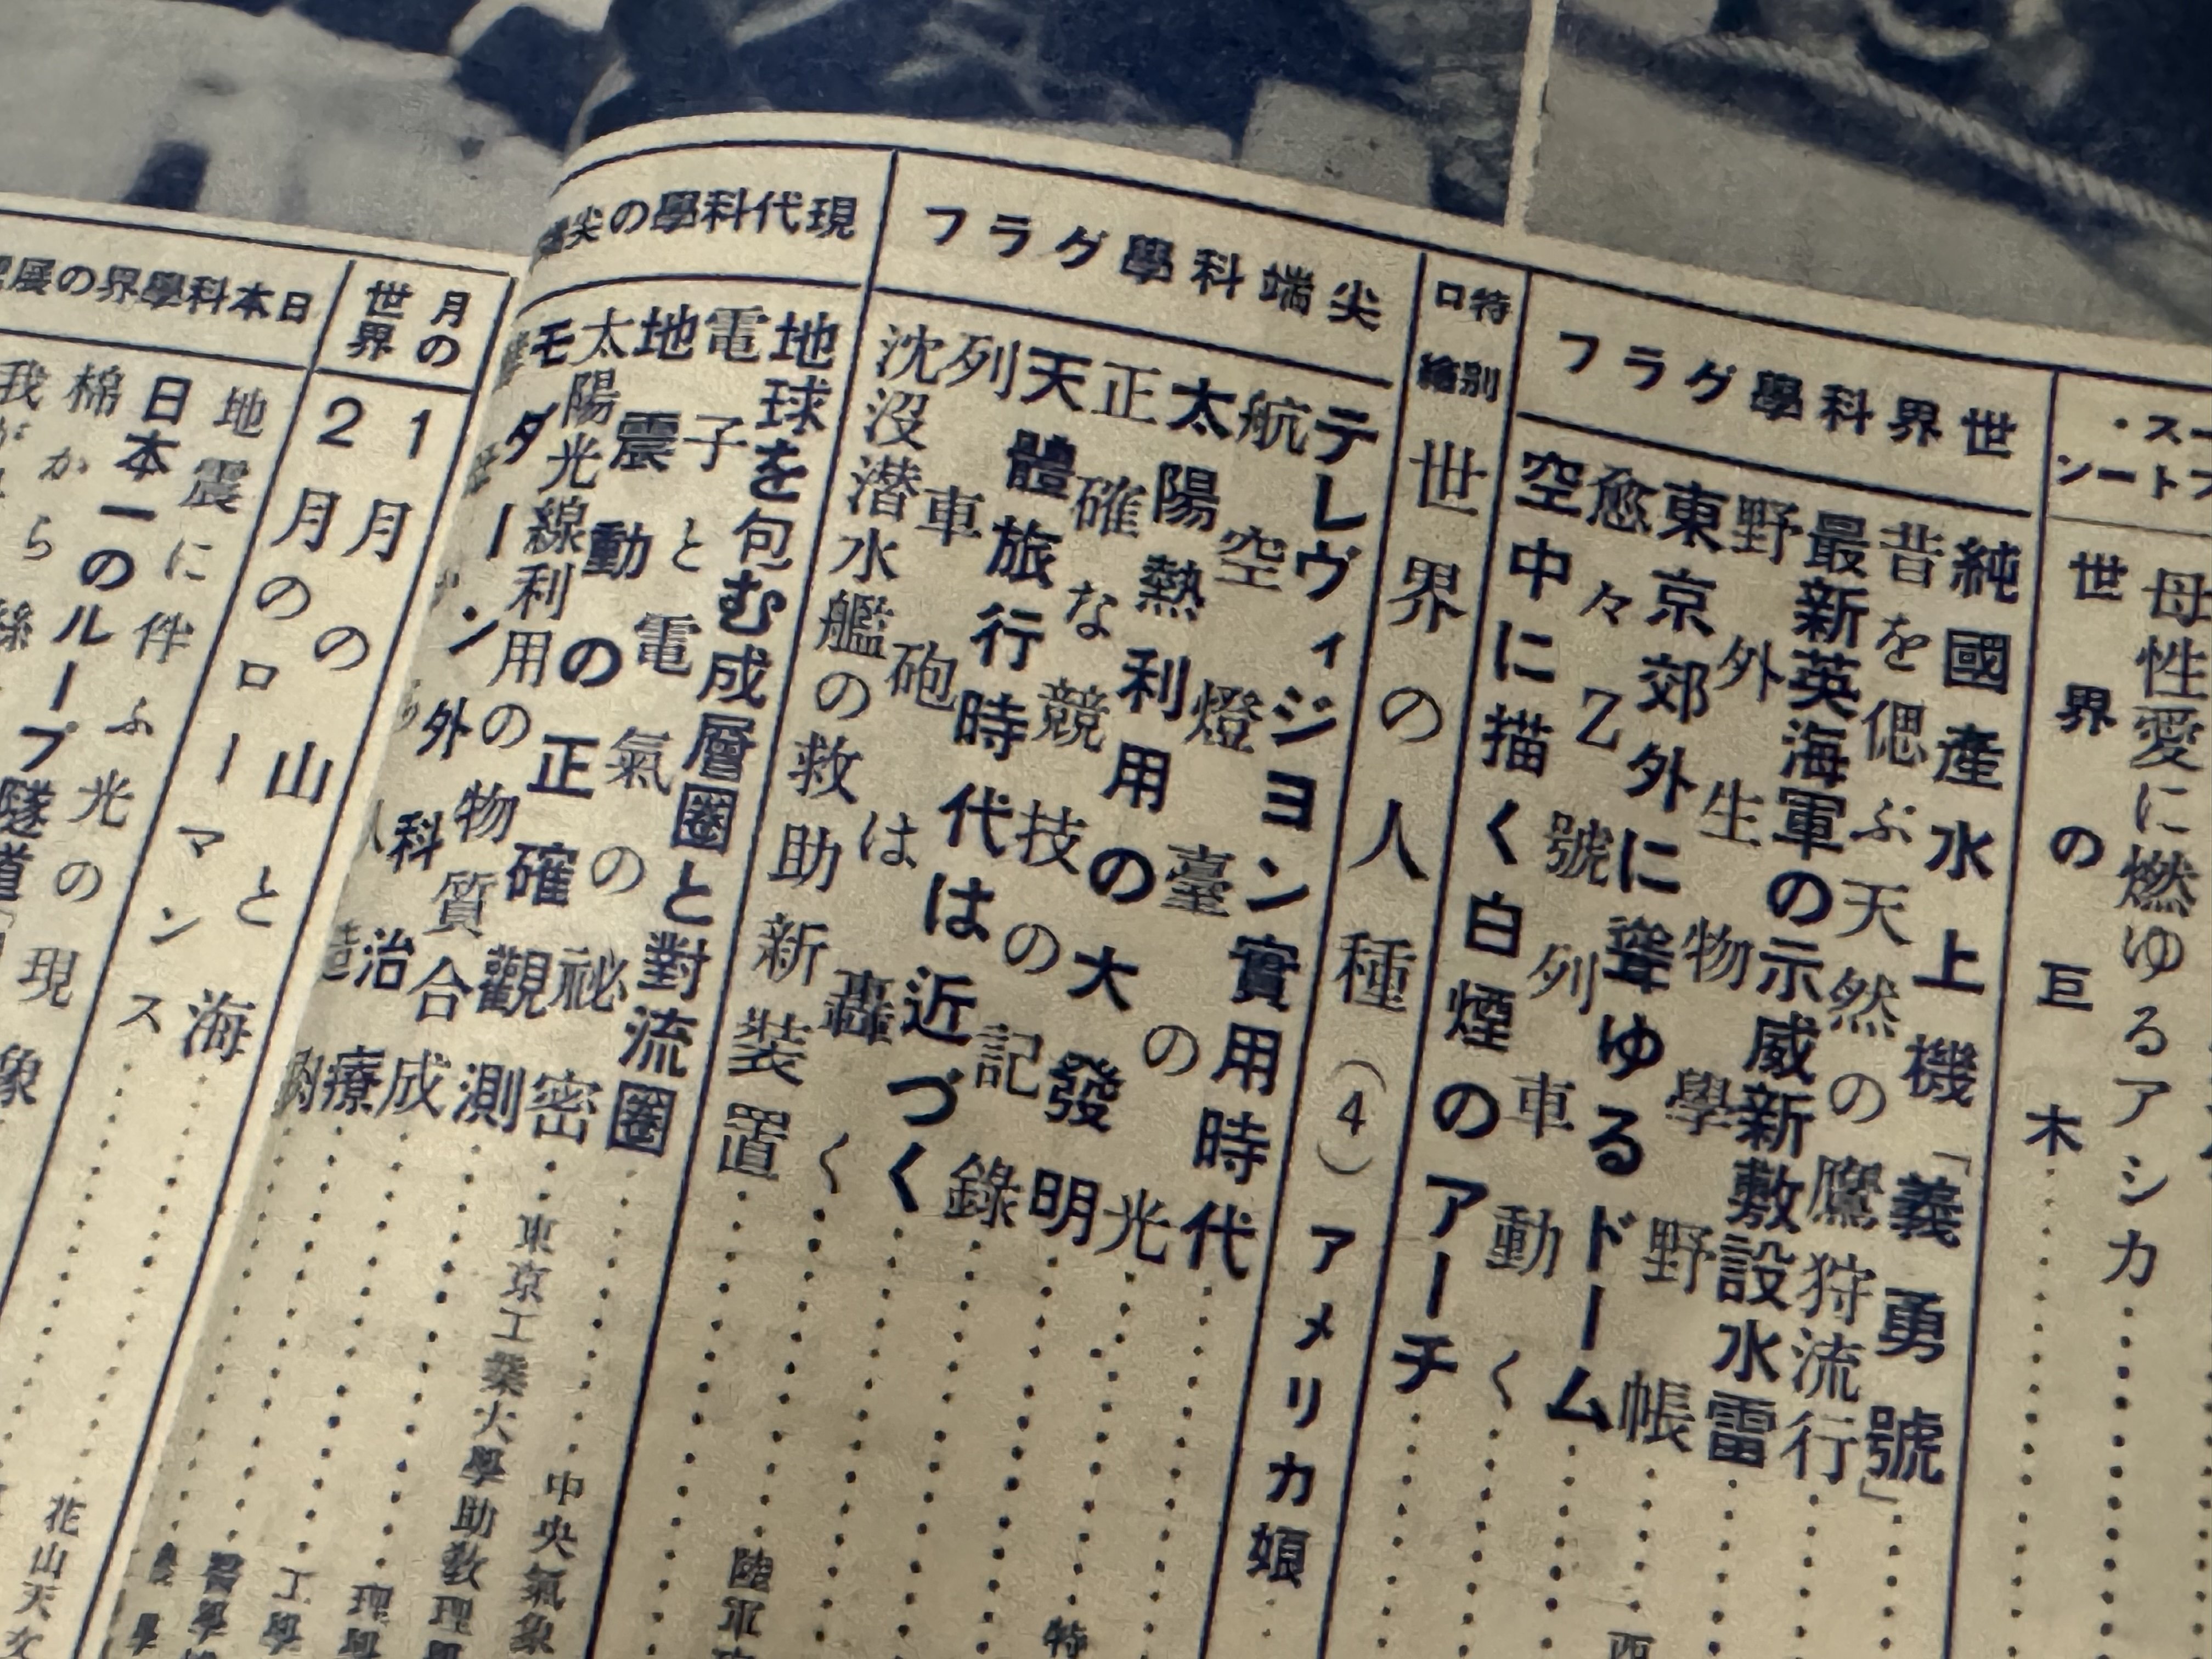 母性愛に燃ゆるアシカ
世界の巨木
世界科學グラフ
純國産水上機「義勇號」
昔を偲ぶ天然の鷹狩流行
最新英海軍の示威新敷設水雷
野外生物學野帳
東京郊外に聳ゆるドーム
愈々Z號列車動く
空中に描く白煙のアーチ
特別口繪
世界の人種(4)アメリカ娘
尖端科學グラフ
テレヴィジヨン實用時代
航空燈臺の光
太陽熱利用の大發明
正確な競技の記錄
天體旅行時代は近づく
列車砲は轟く
沈没潜水艦の救助新装置
陸軍
特
現代科學の尖端
地球を包む成層圏と對流圏
中央氣象
電子と電氣の祕密
東京工業大學助敎理學
地震動の正確觀測
理學
太陽光線利用の物質合成
工學
モダーン外科治療
醫學
月の世界
1月の山と海
2月のローマンス
日本科學界の展
地震に伴ふ光の現象
日本一のループ隧道
花山天文
棉から絲
我が